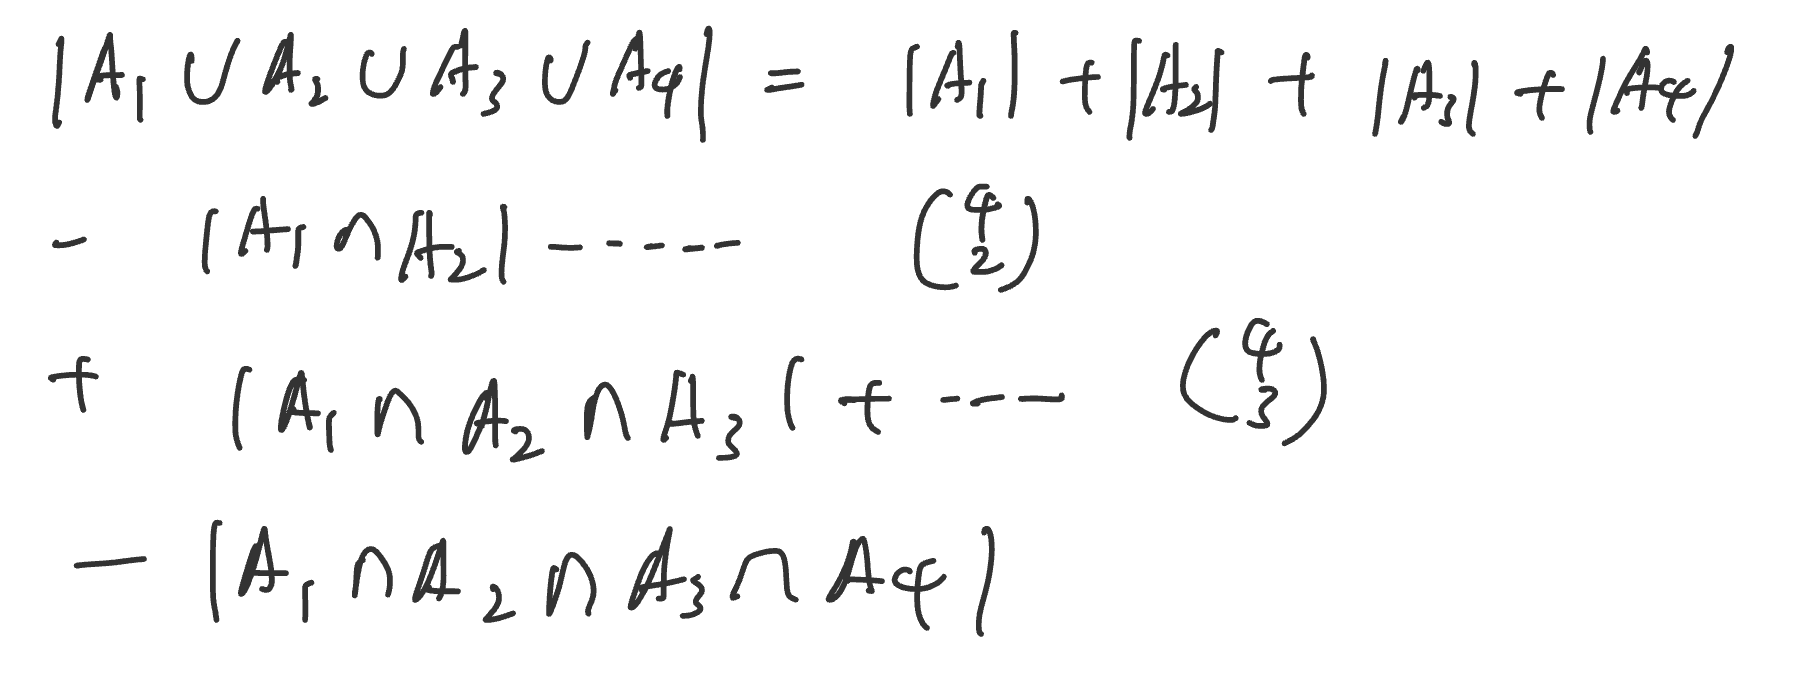 |A₁ ∪ A₂ ∪ A₃ ∪ A₄| = |A₁| + |A₂| + |A₃| + |A₄|
- |A₁ ∩ A₂| - - - - - (4 2)
+ |A₁ ∩ A₂ ∩ A₃| + - - - (4 3)
- |A₁ ∩ A₂ ∩ A₃ ∩ A₄|